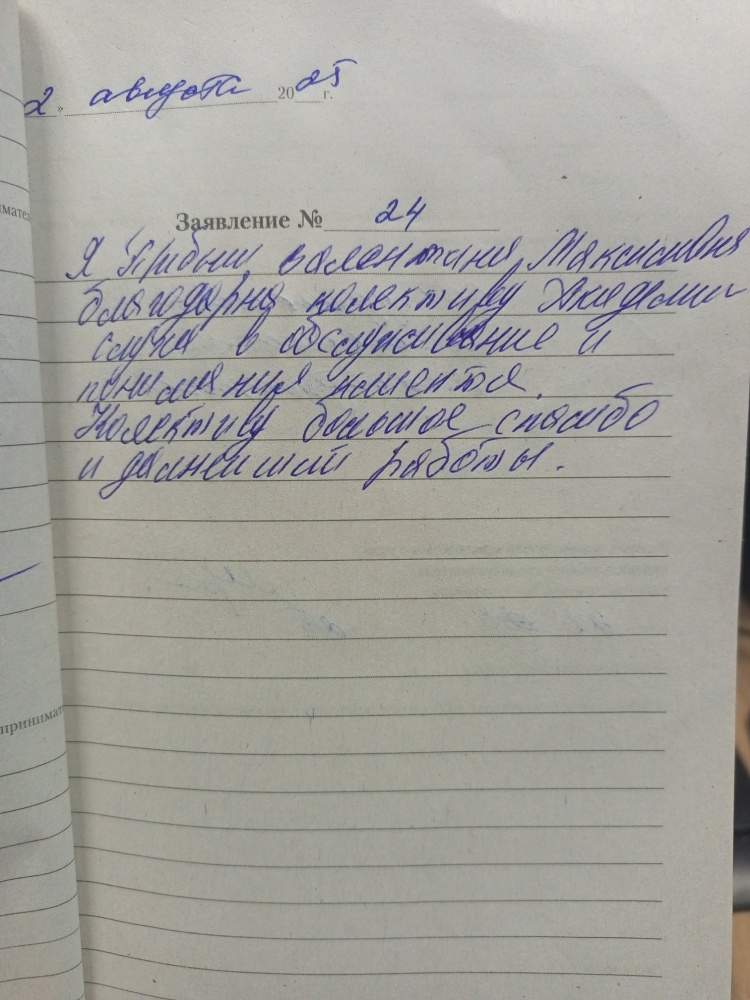 2 » августа 2025 г.
Заявление № 24
Я Валентина Максимовна
благодарна колективу Академии
слуха в обслуживание и
понимания клиента.
Колективу большое спасибо
и дальнейший работы.
имате
принимат